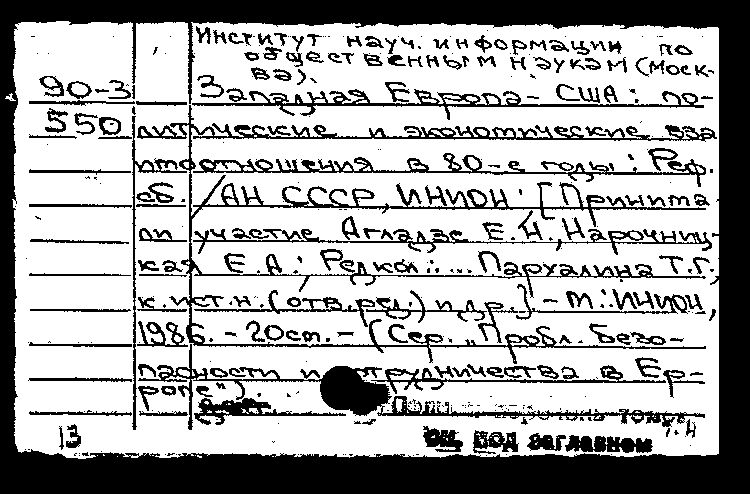 Институт науч. информации по
общественным наукам (Моск-
ва).
90-3 Западная Европа - США: по-
550 литические и экономические вза
имоотношения в 80-е годы: Реф.
сб. / АН СССР, ИНИОН; [Принима
ли участие Агладзе Е.Н., Нарочниц-
кая Е.А.; Редкол.: ... Пархалина Т.Г.,
к.ист.н. (отв.ред.) и др.] - М.: ИНИОН,
1986. - 20см. - (Сер. "Пробл. безо-
пасности и сотрудничества в Ев-
ропе").
13 см. под заглавием